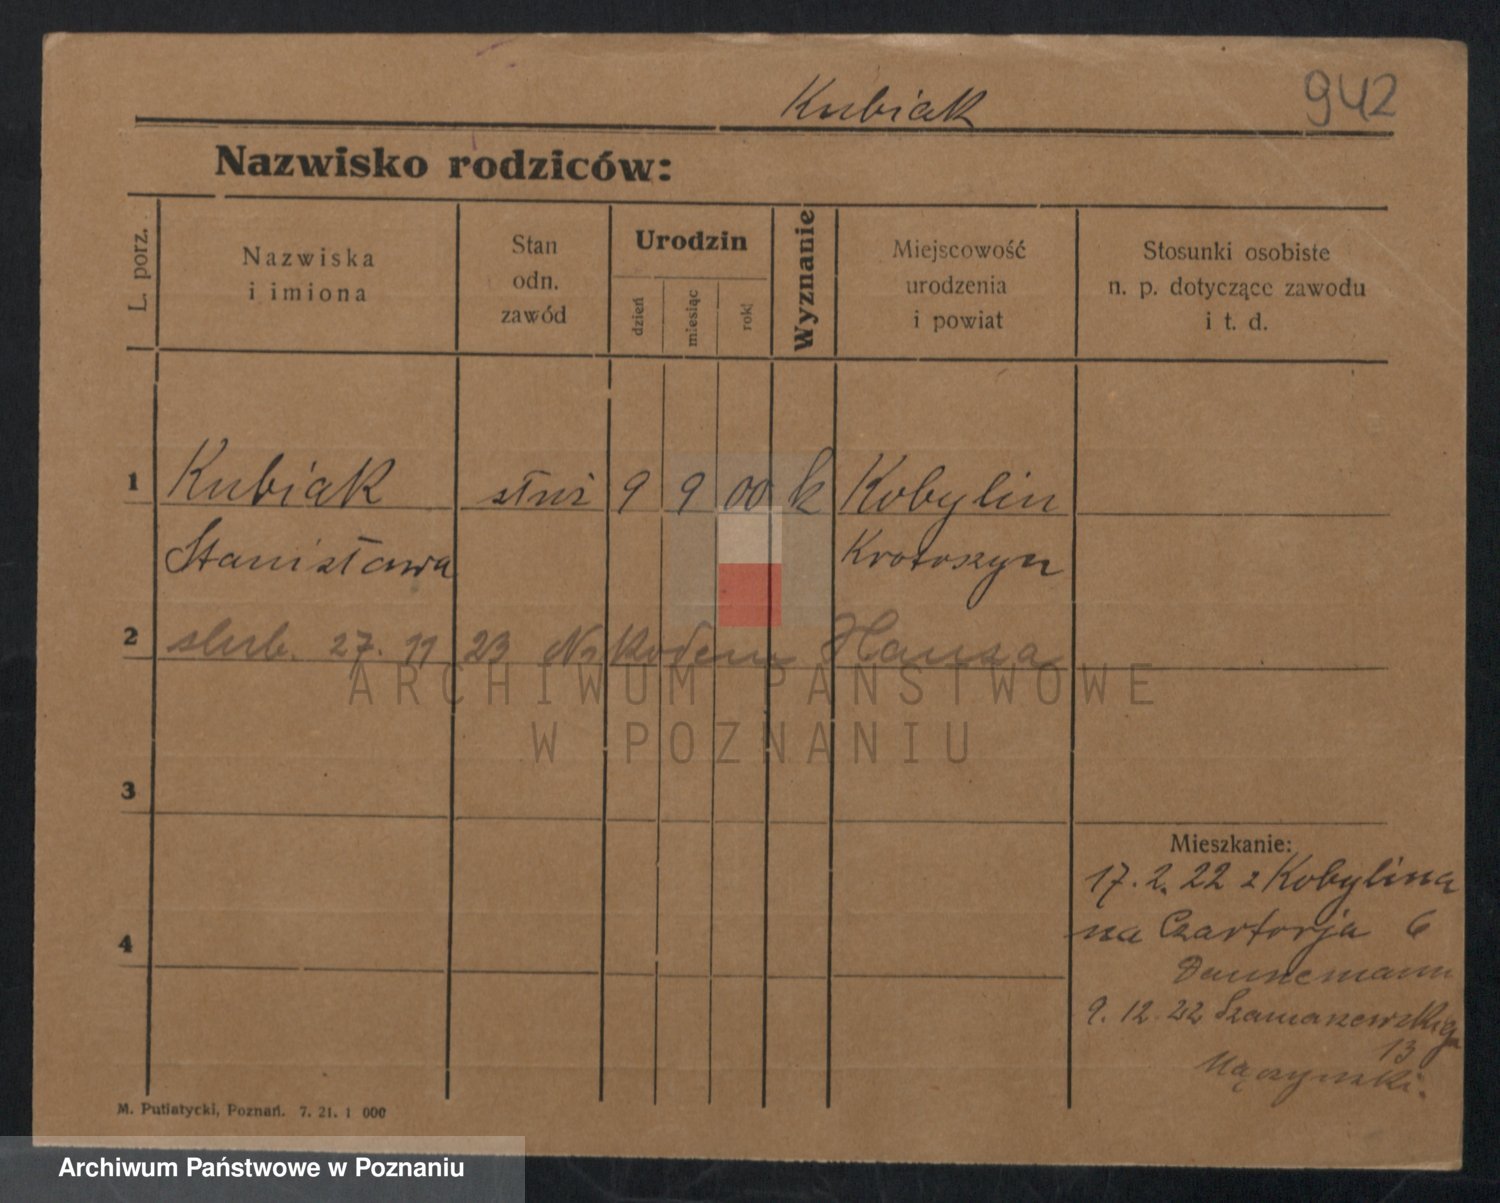 Kubiak
942
Nazwisko rodziców:
L. porz.
Nazwiska
i imiona
Stan
odn.
zawód
Urodzin
dzień
miesiąc
rok
Wyznanie
Miejscowość
urodzenia
i powiat
Stosunki osobiste
n. p. dotyczące zawodu
i t. d.
1 Kubiak służ 9 9 00 k Kobylin
Stanisława Krotoszyn
2 slub. 27. 11 23 Nikodem Hausa
3
4
Mieszkanie:
17. 2. 22 z Kobylina
na Czartorja 6
Dannemann
9. 12. 22 Szamarzewskiego
13
Mączynski.
M. Putiatycki, Poznań. 7. 21. 1 000
ARCHIWUM PAŃSTWOWE
W POZNANIU
Archiwum Państwowe w Poznaniu